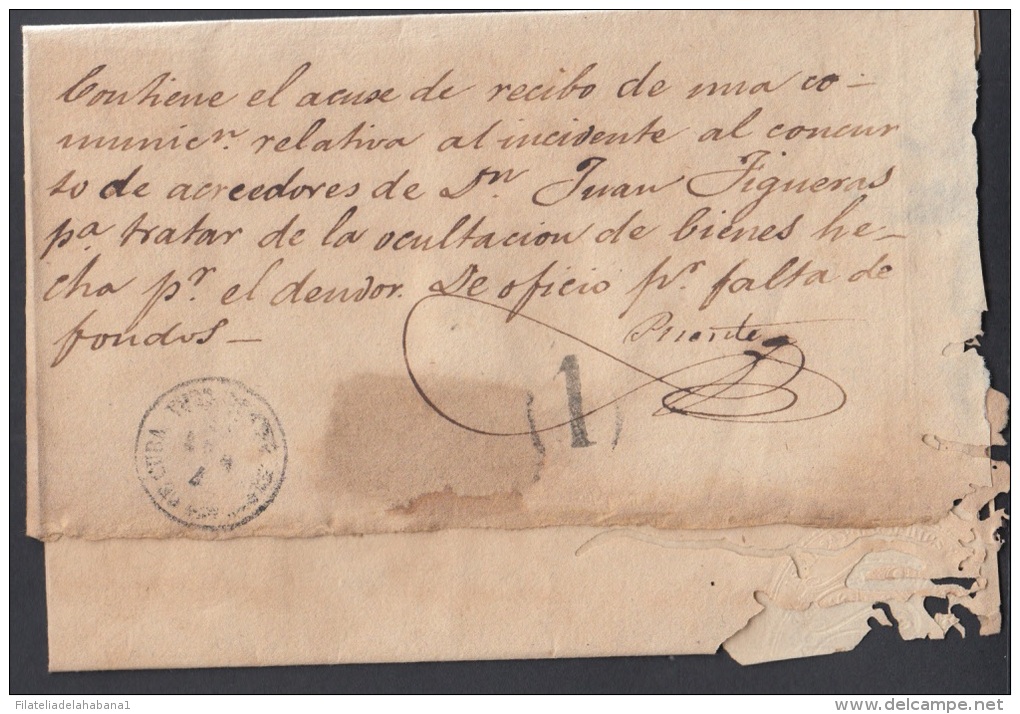 Contiene el acuse de recibo de una co-
municn. relativa al incidente al concur
so de acreedores de Dn. Juan Figueras
pa. tratar de la ocultacion de bienes he-
cha pr. el deudor. De oficio pr. falta de
fondos_
Puente
(1)
DE CUBA
FilateliadelaHabana1
delcampe.net